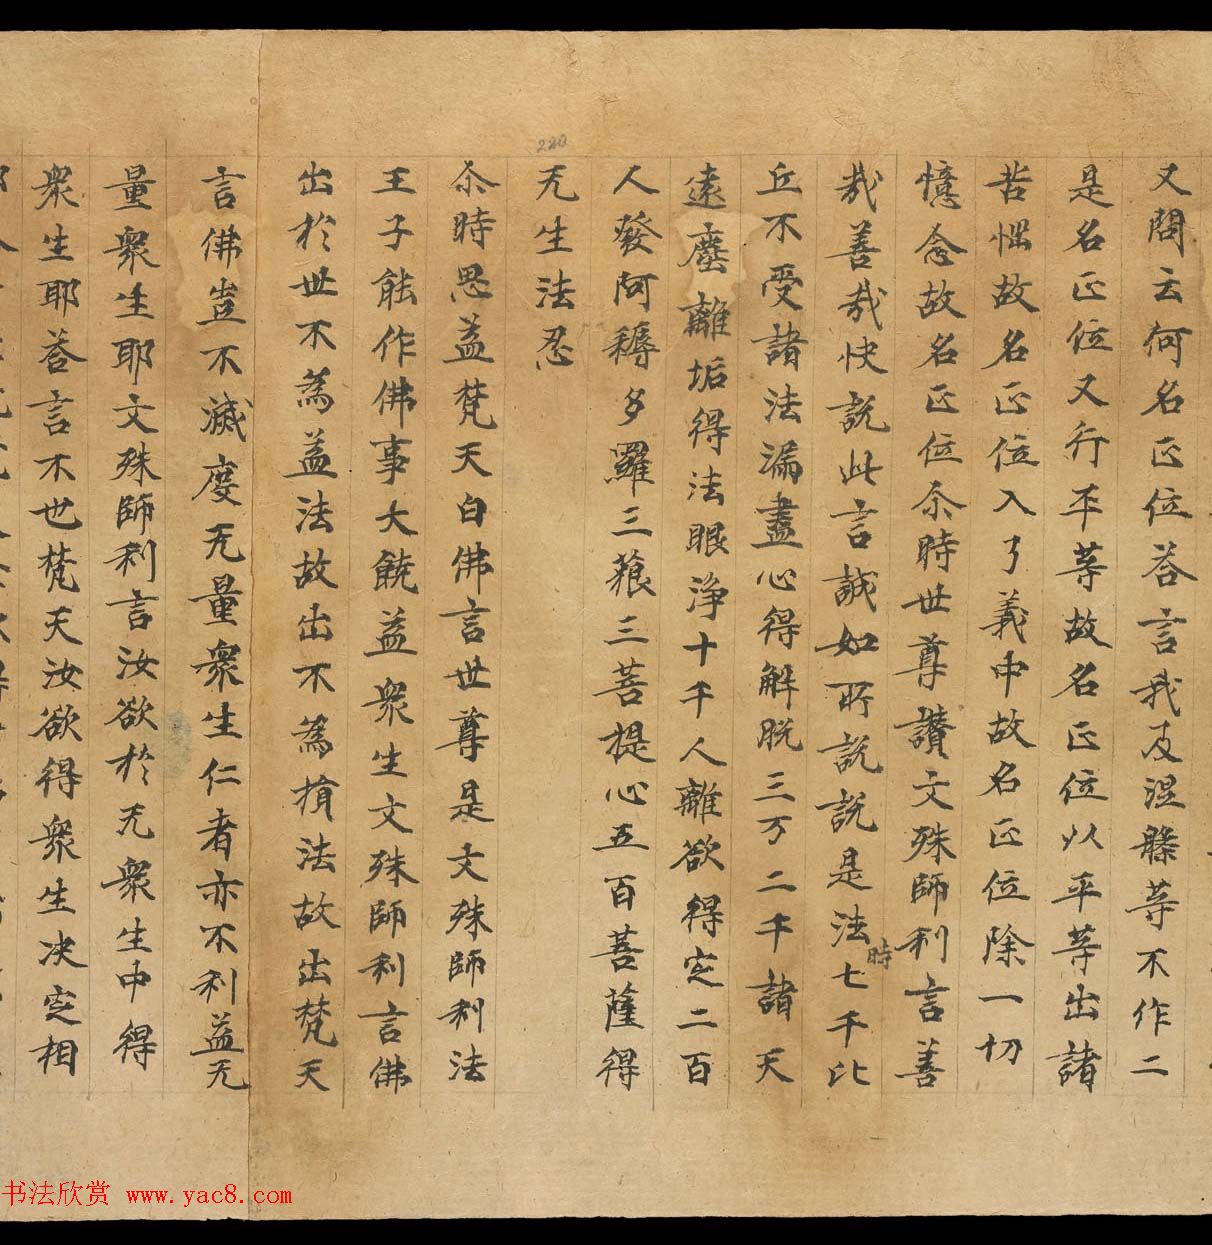 又問云何名正位荅言我及涅槃等不作二
是名正位又行平等故名正位以平等出諸
苦惱故名正位入了義中故名正位除一切
憶念故名正位尒時世尊讚文殊師利言善
㢤善㢤快說此言誠如所說說是法時七千比
丘不受諸法漏盡心得解脫三万二千諸天
遠塵離垢得法眼淨十千人離欲得定二百
人發阿耨多羅三藐三菩提心五百菩薩得
无生法忍
尒時思益梵天白佛言世尊是文殊師利法
王子能作佛事大饒益衆生文殊師利言佛
出於世不為益法故出不為損法故出梵天
言佛豈不滅度无量衆生仁者亦不利益无
量衆生耶文殊師利言汝欲於无衆生中得
衆生耶荅言不也梵天汝欲得衆生决定相
220
书法欣赏 www.yac8.com